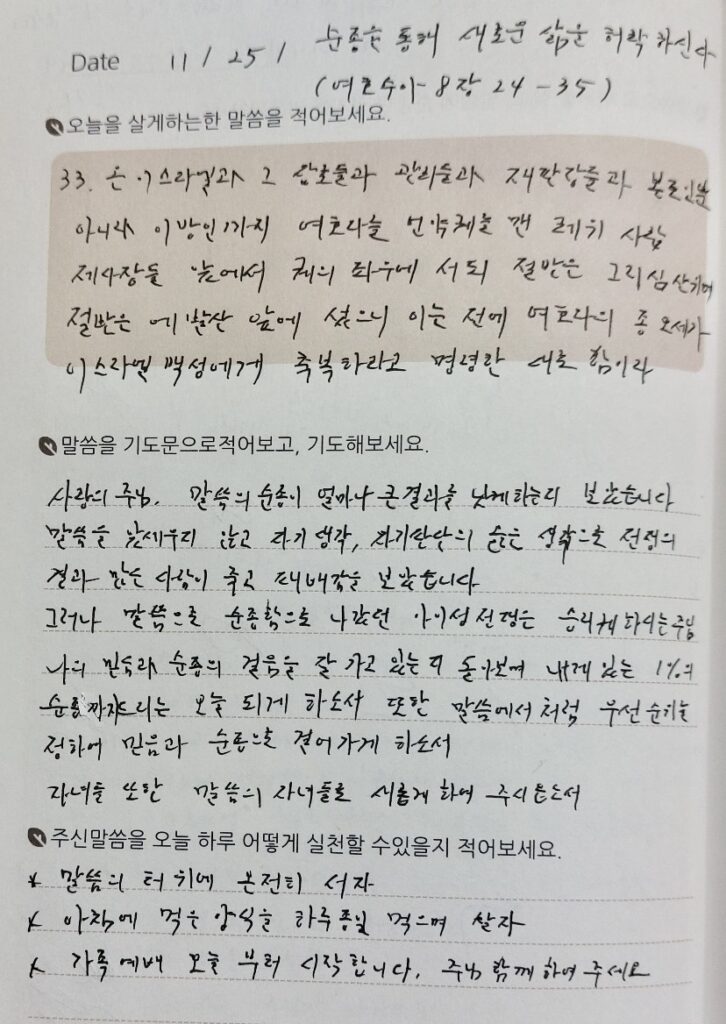 순종을 통해 새로운 삶을 허락하신다
Date 11 / 25 /
(여호수아 8장 24-35)
오늘을 살게하는한 말씀을 적어보세요.
33. 온 이스라엘과 그 장로들과 관리들과 재판장들과 본토인뿐
아니라 이방인까지 여호와의 언약궤를 멘 레위 사람
제사장들 앞에서 궤의 좌우에 서되 절반은 그리심 산 앞에
절반은 에발산 앞에 섰으니 이는 전에 여호와의 종 모세가
이스라엘 백성에게 축복하라고 명령한 대로 함이라
말씀을 기도문으로적어보고, 기도해보세요.
사랑의 주님. 말씀의 순종이 얼마나 큰결과를 낳게하는지 보았습니다
말씀을 앞세우지 않고 자기 생각, 자기판단의 생각으로 전쟁의
결과 많은 사람이 죽고 패배감을 보았습니다
그러나 말씀으로 순종함으로 나갔던 아이성 전쟁은 승리케 하시는 주님
나의 믿음과 순종의 걸음을 잘 가고 있는지 돌아보며 내게 있는 1%의
순종까지 드리는 오늘 되게 하소서 또한 말씀에서처럼 우선순위를
정하여 믿음과 순종으로 걸어가게 하소서
자녀들 또한 말씀의 자녀들로 새롭게 하여 주시옵소서
주신말씀을 오늘 하루 어떻게 실천할 수있을지 적어보세요.
* 말씀의 터 위에 온전히 서자
* 아침에 먹은 양식을 하루종일 먹으며 살자
* 가족예배 오늘 부터 시작합니다. 주님 함께하여 주세요